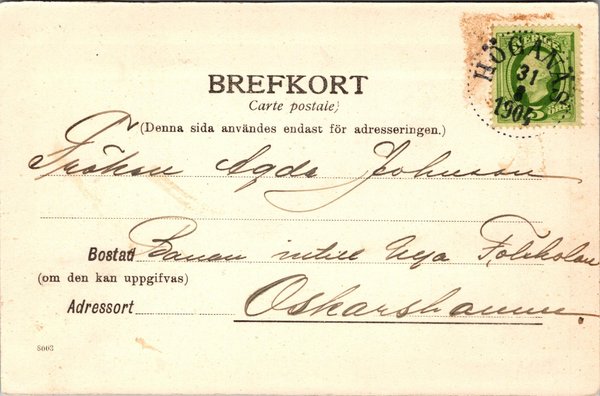 HÖGANÄS
31
190
5 ÖRE
BREFKORT
Carte postale)
(Denna sida användes endast för adresseringen.)
Fröken Agda Johnson
Bostad Banan intill Nya Folkskolan
(om den kan uppgifvas)
Adressort Oskarshamn.
8663